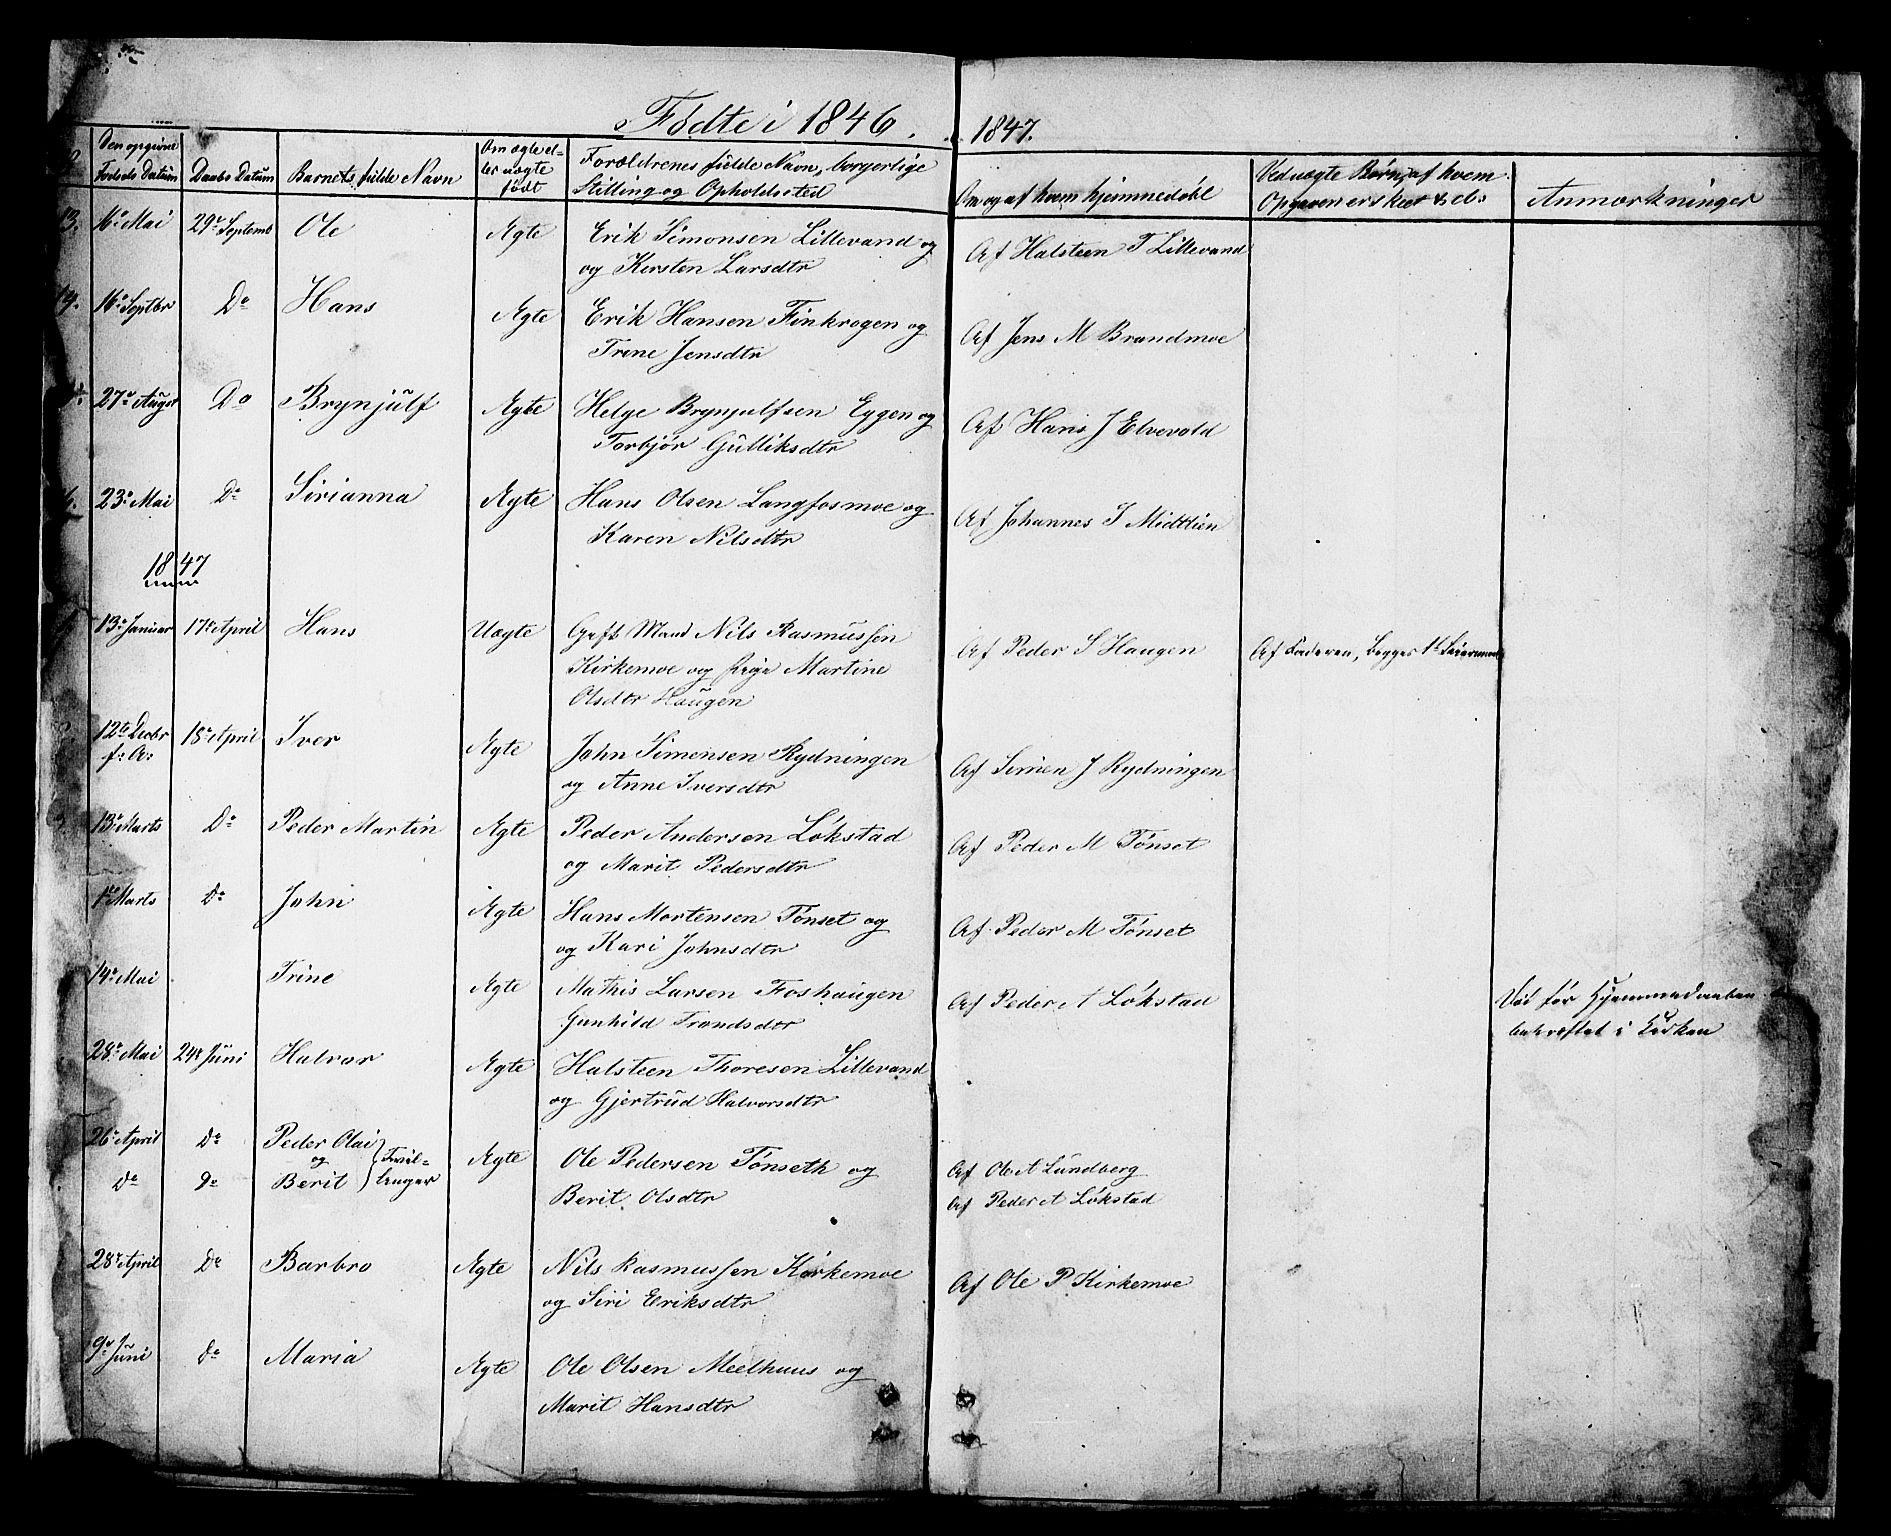 Fødte i 1846. 1847.
Den opgivne Fødsels Datum
Daabs Datum
Barnets fulde Navn
Om ægte eller uægte født
Forældrenes fulde Navn, borgerlige Stilling og Opholdssted
Om og af hvem hjemmedøbt
Ved uægte Børn, af hvem Opgaven er skeet &c.
Anmærkninger
13. 16de Mai 29de Septemb Ole Ægte Erik Simonsen Lillevand og Af Halsteen T Lillevand
og Kersten Larsdtr
14. 16de Septbr Do Hans Ægte Erik Hansen Finkrogen og Af Jens M Brandmoe
Trine Jensdtr
27de August Do Brynjulf Ægte Helge Brynjulfsen Eggen og Af Hans J Elvevold
Torbjør Gulliksdtr
23de Mai Do Sirianna Ægte Hans Olsen Langfosmoe og Af Johannes I Midtlien
Karen Nilsdtr
1847
13de Januar 17de April Hans Uægte Gift Mand Nils Rasmussen Af Peder S Haugen Af Faderen, begges 1ste Leiermaal
Kirkemoe og Pige Martine
Olsdtr Haugen
12te Decbr 18de April Iver Ægte John Simensen Rydningen Af Simen J Rydningen
f: A:
og Anne Iversdtr
13de Marts Do Peder Martin Ægte Peder Andersen Løkstad Af Peder M Tønset
og Marit Pedersdtr
1ste Marts Do John Ægte Hans Mortensen Tønset og Af Peder M Tønset
og Kari Johnsdtr
14de Mai Trine Ægte Mathis Larsen Foshaugen Af Peder A Løkstad før Hjemmedaaben
Gunhild Trondsdtr bekræftet i Kirken
28de Mai 24de Juni Halvor Ægte Halsteen Thoresen Lillevand
og Gjertrud Halvorsdtr
26de April Do Peder Olai Ægte Ole Pedersen Tønseth og Af Ole A Lundberg
og Tvillinger
Do Do Berit Berit Olsdtr Af Peder A Løkstad
28de April Do Barbro Ægte Nils Rasmussen Kirkemoe Af Ole P Kirkemoe
og Siri Eriksdtr
9de Juni Do Maria Ægte Ole Olsen Meelhuus og
Marit Hansdtr